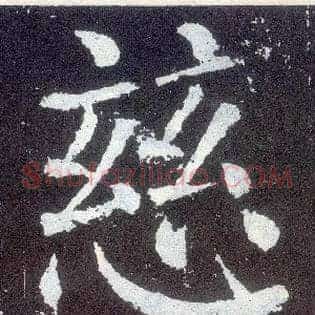 慈
shufaziliao.com